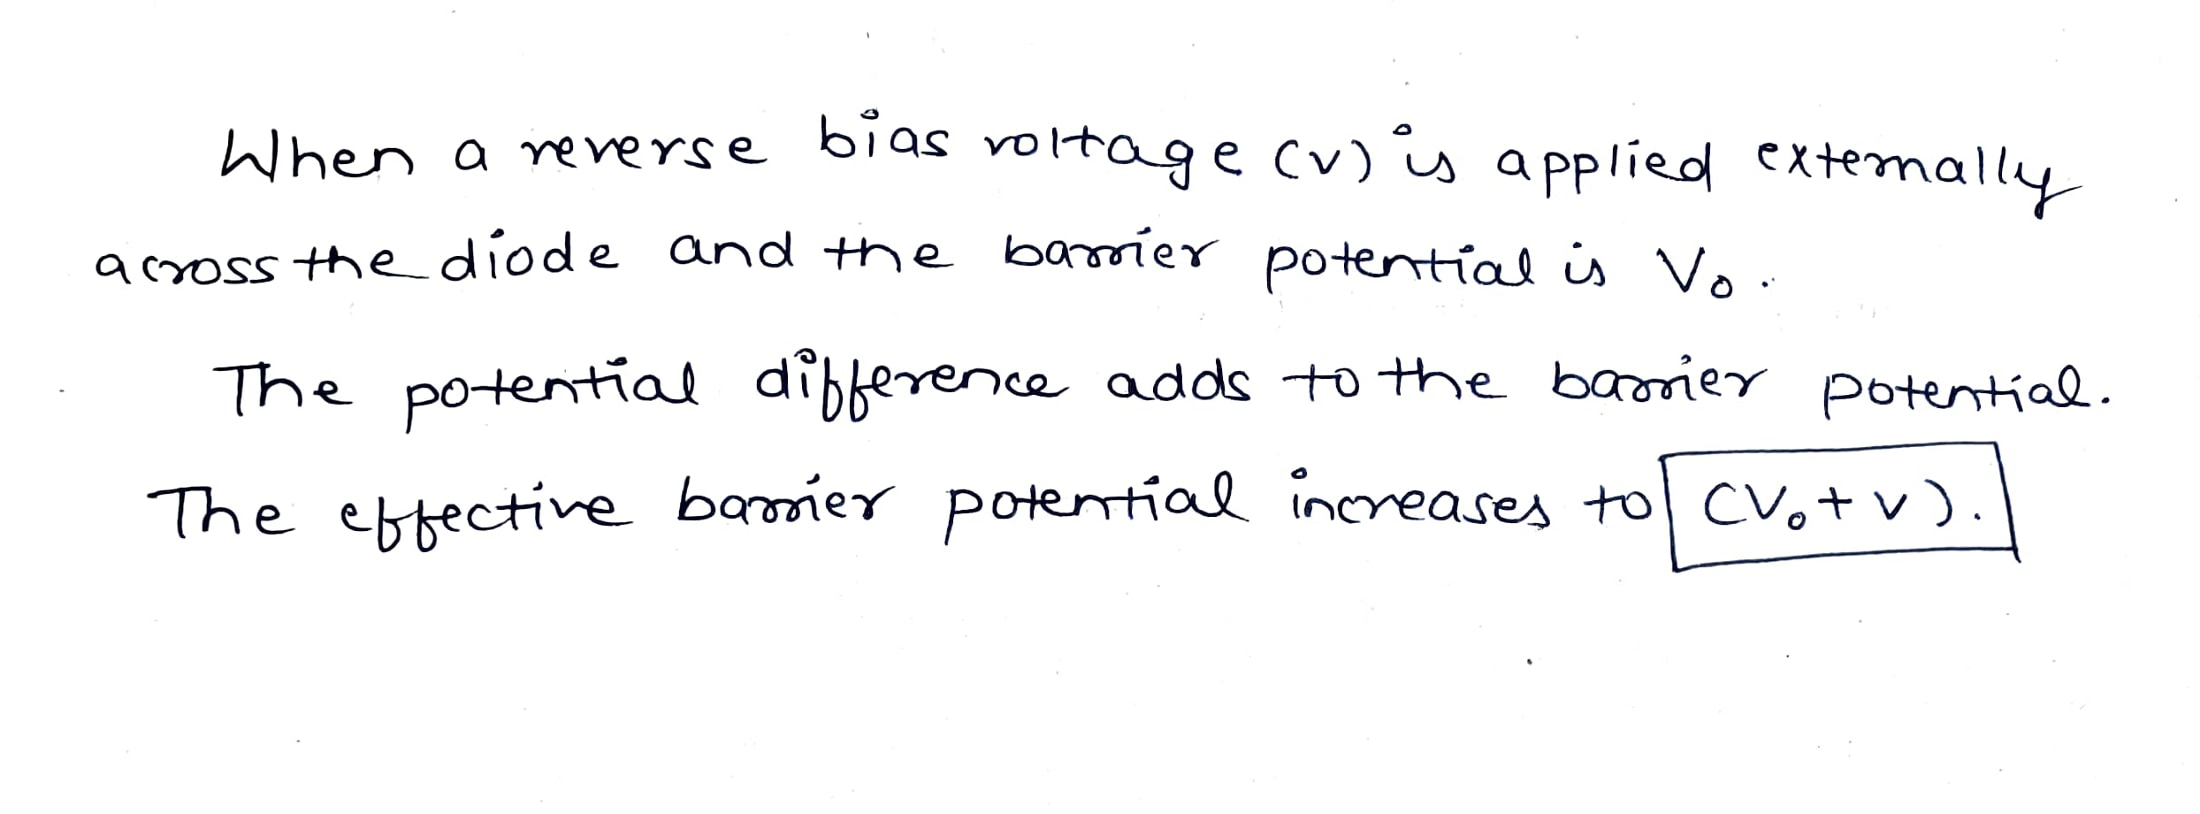 When a reverse bias voltage (v) is applied externally
across the diode and the barrier potential is V₀.
The potential difference adds to the barrier potential.
The effective barrier potential increases to (V₀+v).